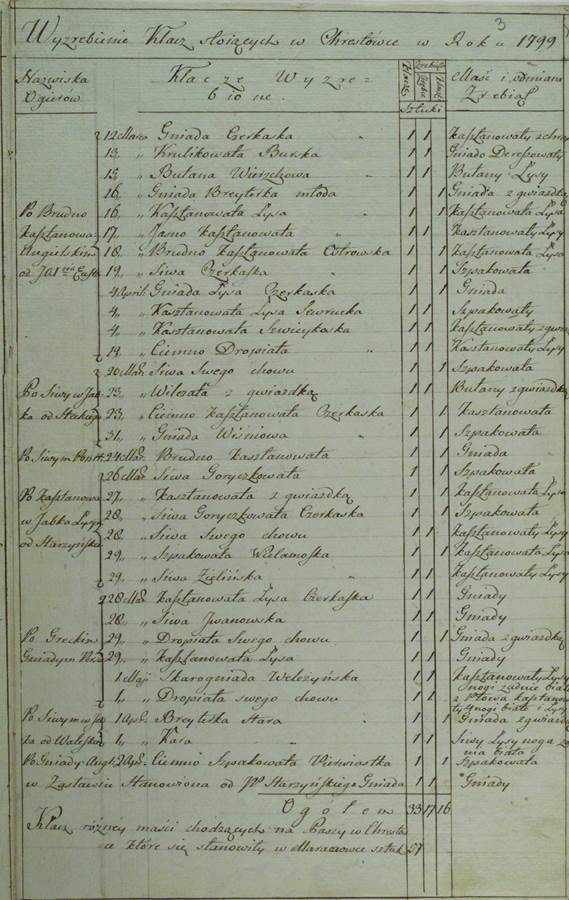 3
Wyzrebienie Klacz stoiących w Chrestówce w Roku 1799
Nazwiska Ogierów
Klacze Wyzrebione.
Klacze
Sztuki
Maść i odmiana Zrebiąt
12 Marca Gniada Czerkaska 1 1 Kasztanowaty
13 „ Krulikowata Burska 1 1 Gniado Dereszowaty
15 „ Bułana Wierzchowa 1 1 Bułany Łysy
16 „ Gniada Breyterka młoda 1 1 Gniada z gwiazdką
Po Brudno 16 „ Kasztanowata Łysa 1 1 Kasztanowata Łysa
kasztanowa: 17 „ Jasno Kasztanowata 1 1 Kasztanowaty Łysy
Angielskim 18 „ Brudno Kasztanowata Cotrowska 1 1 Kasztanowata Łysa
19 „ Siwa Czerkaska 1 1 Szpakowata
4 April: Gniada Łysa Czerkaska 1 1 Gniada
4 „ Kasztanowata Łysa Sewrucka 1 1 Szpakowaty
4 „ Kasztanowata Szweykaska 1 1 Kasztanowaty z gwia
14 „ Ciemno Dropiata 1 1 Kasztanowaty Łysy
20 Mar: Siwa Swego chowu 1 1 Szpakowata
Po Siwy w Jab 23 „ Wilczata z gwiazdką 1 1 Bułany z gwiazdką
ka od 23 „ Ciemno Kasztanowata Czerkaska 1 1 Kasztanowata
31 „ Gniada Wiśniowa 1 1 Szpakowata
Po Siwym 24 Mar: Brudno Kasztanowata 1 1 Gniada
26 Mar: Siwa Goryczkowata 1 1 Szpakowata
Po Kasztanowa 27 „ Kasztanowata z gwiazdką 1 1 Kasztanowata Łysa
w Jabka Łysym 28 „ Siwa Goryczkowata Czerkaska 1 1 Szpakowata
od Starzyńskie 28 „ Siwa Swego chowu 1 1 Kasztanowaty Łysy
29 „ Szpakowata Wielamoska 1 1 Kasztanowata Łysa
29 „ Siwa Zielińska 1 1 Kasztanowaty Łysy
28 Mar: Kasztanowata Łysa Czerkaska 1 1 Gniady
28 „ Siwa Iwanowska 1 1 Gniady
Po Greckim 29 „ Dropiata Swego chowu 1 1 Gniada z gwiazdką
Gniadym 29 „ Kasztanowata Łysa 1 1 Gniady
1 Maji Skarogniada Wełczyńska 1 1 Kasztanowaty Łysy nogi zadnie białe
1 „ Dropiata swego chowu 1 1 z Płowa Kasztanowaty 4 nogi białe i Łysy
Po Siwym w Ja 1 Apr: Breyterka Stara 1 1 Gniada z gwiazdą
ka od 1 „ Kara 1 1 Siwy Łysy noga zadnia biała
Po Gniady Angl: 2 Apr: Ciemno Szpakowata Pierwiastka 1 1 Szpakowata
w Zasławiu Stanowiona od JP Starzyńskiego Gniada 1 1 Gniady
Ogółem 33 17 16
Klacz rózney maści chodzących na Paszy w Chresto
ce które się stanowiły w sztuk 57